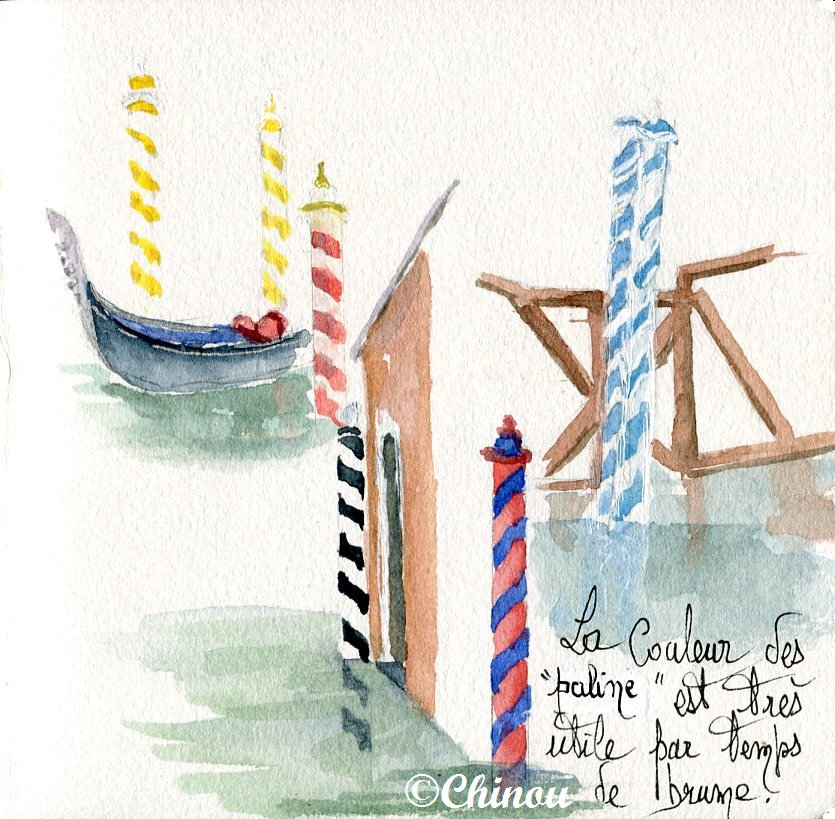 La Couleur des
"paline" est très
utile par temps
de brume.
©Chinou